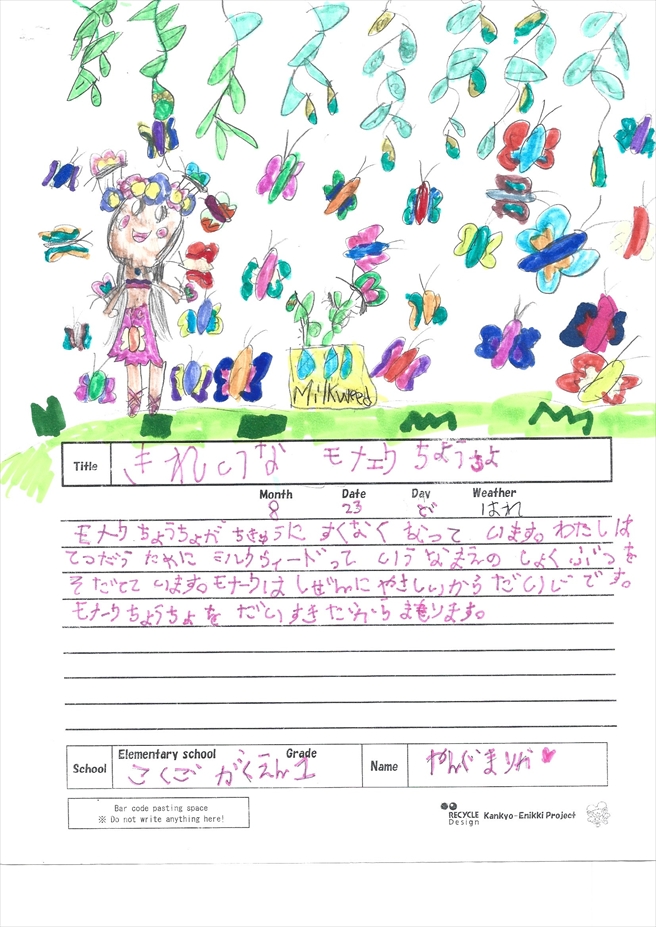 Milkweed
Title きれいな モナーク ちょうちょ
Month Date Day Weather
8 23 ど はれ
モナークちょうちょが ちきゅうに すくなく なって います。わたしは
てつだう ために ミルクウィードって いう なまえの しょくぶつを
そだてて います。モナークは しぜんに やさしいから だいじ です。
モナークちょうちょを だいすきだから まもります。
School Elementary school Grade Name
こくご がくえん 1 やんぐ まりか
Bar code pasting space
※ Do not write anything here!
RECYCLE Design Kankyo-Enikki Project